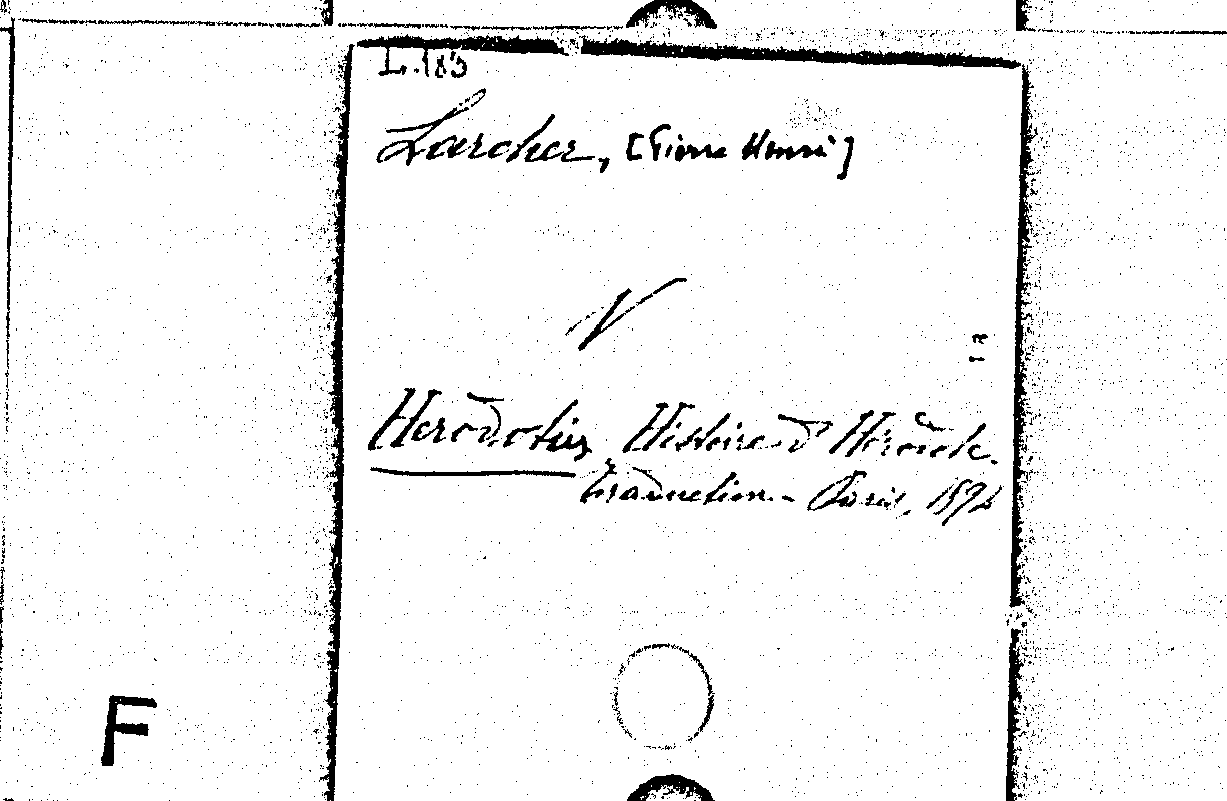 L.183
Larcher, [Pierre Henri]
V
Herodotus, Histoire d'Hérodote.
Traduction. - Paris,
F